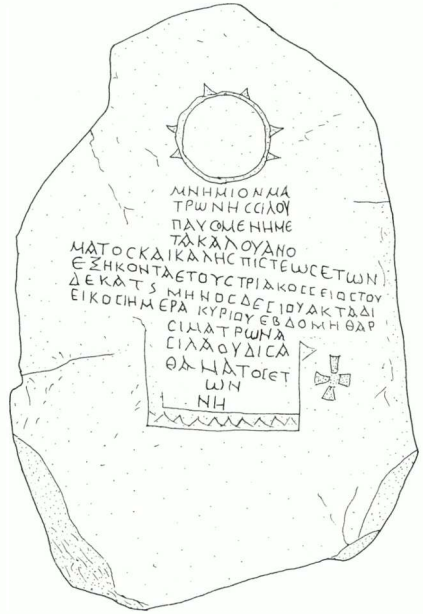 ΜΝΗΜΙΟΝΜΑ
ΤΡΩΝΗCCΙΛΟΥ
ΠΑΥCΟΜΕΝΗΜΕ
ΤΑΚΑΛΟΥΑΝΟ
ΜΑΤΟCΚΑΙΚΑΛΗCΠΙCΤΕΩCΕΤΩΝ
ΕΞΗΚΟΝΤΑΕΤΟΥCΤΡΙΑΚΟCCΕΙΟCΤΟΥ
ΔΕΚΑΤS ΜΗΝΟCΔΕCΙΟΥΑΚΤΑΔΙ
ΕΙΚΟCΙΗΜΕΡΑ ΚΥΡΙΟΥΕΒΔΟΜΗΘΑΡ
CΙΜΑΤΡΩΝΑ
CΙΛΑΟΥΔΙCΑ
ΘΑΝΑΤΟCΕΤ
ΩΝ
ΝΗ